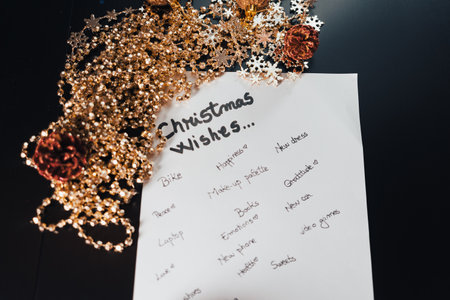 Christmas
Wishes...
Bike Happiness New dress
Peace Make-up palette Gratitude
Laptop Books New car
Love Emotions video games
New phone
Health Sweets